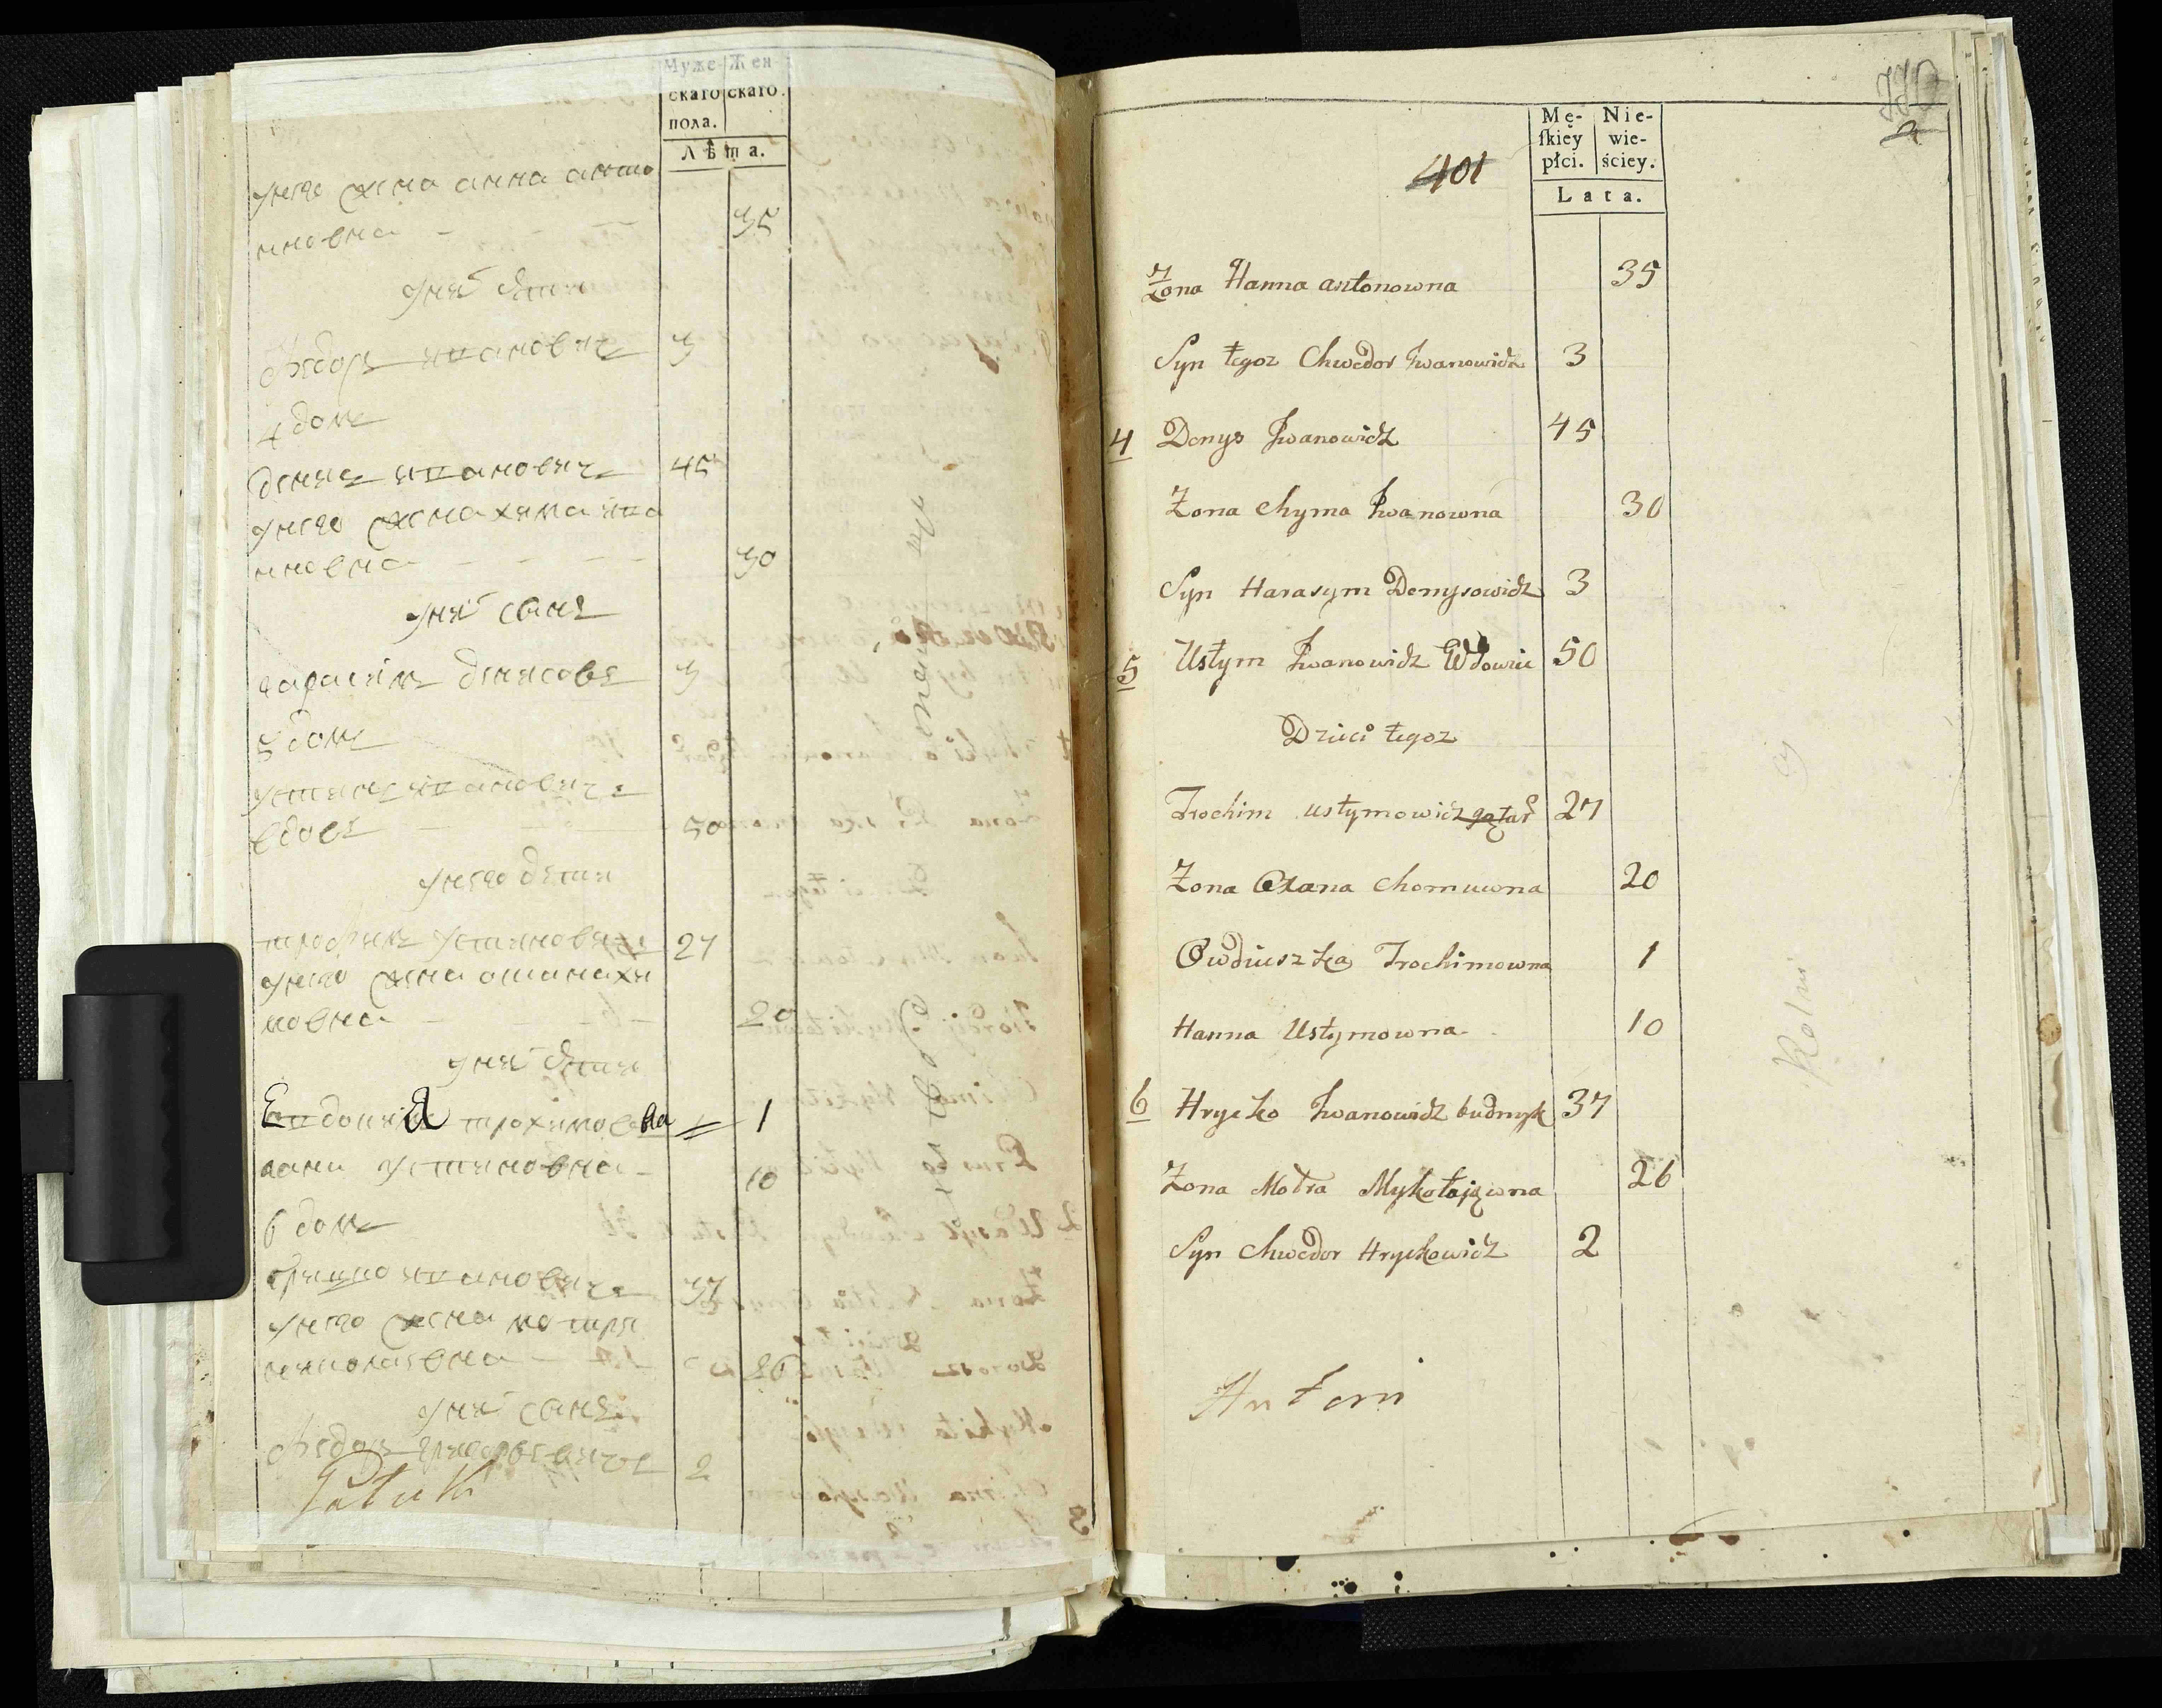 Муже- Жен-
скаго скаго.
пола.
Лѣта.
унего жена анна анто
новна - 35
унихъ дети
ѳедоръ ивановичъ 3
4 домъ
денисъ ивановичъ 45
унего жена хима ива
новна - - - - 30
унихъ сынъ
гарасимъ денисовъ 3
5 домъ
устимъ ивановичъ
вдовъ - 50
унего дети
трофимъ устимовичъ 27
унего жена
мовна - - - 20
унихъ дети
Евдокия трохимовна 1
ганна устимовна - 10
6 домъ
грицко ивановичъ 37
унего жена мотря
николаевна - 26
унихъ сынъ
ѳедоръ григорьевичъ 2
Mę- Nie-
ſkiey wie-
płci. ściey.
Lata.
401
Żona Hanna antonowna 35
Syn tegoz Chwedor Iwanowicz 3
4 Denys Iwanowicz 45
Zona Chyma Iwanowna 30
Syn Harasym Denysowicz 3
5 Ustym Iwanowicz Wdowiec 50
Dzieci tegoz
Trochim ustymowicz 27
Zona Oxana Chomuwna 20
Owdiuszka Trochimowna 1
Hanna Ustymowna 10
6 Hrycko Iwanowicz budnyk 37
Zona Motra Mykołajowna 26
Syn Chwedor Hryckowicz 2